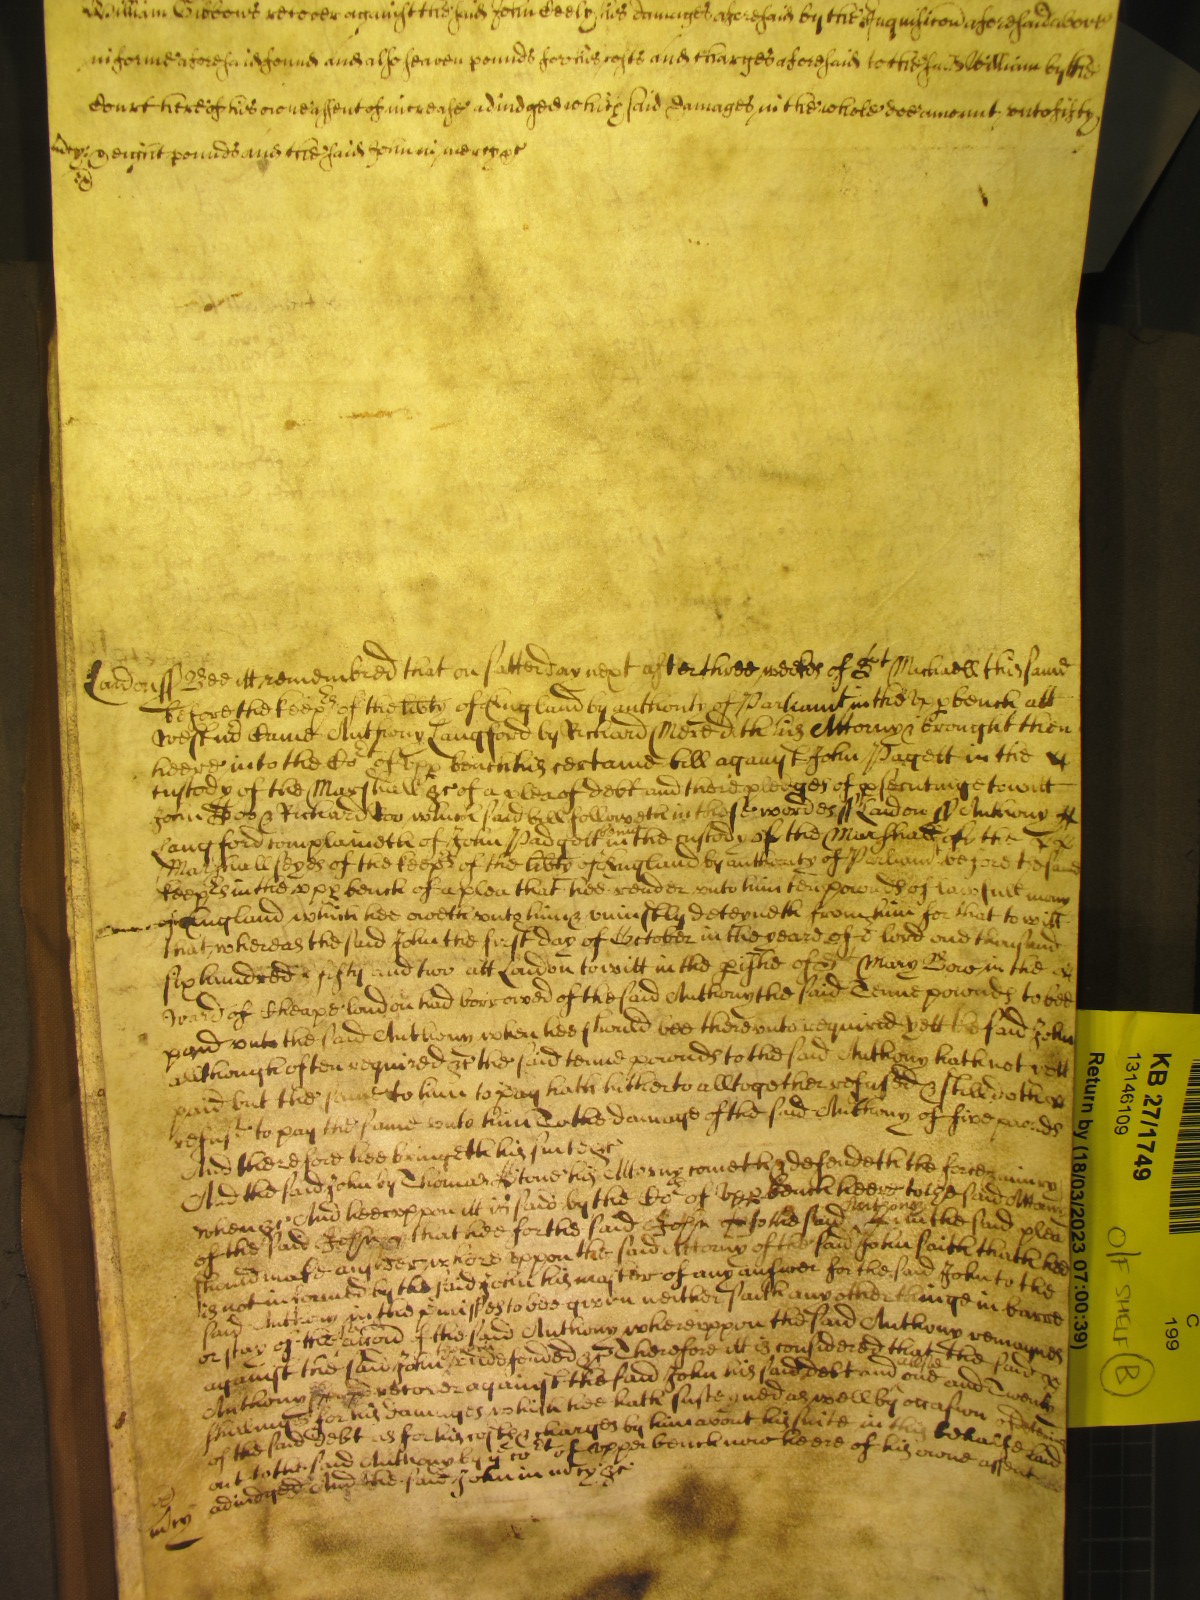 William Gibbons recover against the said John Ceely his damages aforesaid by the Inquisicon aforesaid above
in forme aforesaid found and also seaven pounds for his costs and charges aforesaid to the said William by the
Court here of his owne assent of increase adiudged which said damages in the whole doe amount unto fifty
& eight pounds and the said John in mercy &c
London ss Bee itt remembred that on satterday next after three weekes of St Michaell this same
before the keeprs of the libty of England by authority of Parliamt in the upp bench att
Westmr Came Anthony Langford by Richard Meredith his Attorny & brought then
heere into the Cort of upp bench his certaine bill against John Pagett in the
custody of the Marshall &c of a plea of debt and there pledges of psecutinge to witt
John Doo & Richard Roo which said bill followeth in these wordes ss London ss Anthony
Langford complaineth of John Padgett in the custody of the Marshall of the
Marshallseyes of the keeprs of the libty of England by authority of Parliamt before the said
keeprs in the upp bench of a plea that hee render unto him ten pownds of lawfull mony
of England which hee oweth unto him & uniustly deteyneth from him for that to witt
that whereas the said John the first day of October in the yeare of or lord one thousand
six hundred & fifty and two att London to witt in the pishe of St Mary Bow in the
ward of Cheape london had borrowed of the said Anthony the said Tenne pownds to bee
payd unto the said Anthony when hee should bee thereunto required yett the said John
allthough often required &c the said tenne pownds to the said Anthony hath not yett
paid but the same to him to pay hath hitherto alltogether refused & still doth
refuse to pay the same unto him To the damage of the said Anthony of five pounds
And therefore hee bringeth his suite &c
And the said John by Thomas Stone his Attorny cometh & defendeth the force & iniury
when &c And heereuppon itt is said by the Cort of upp bench heere to the said Attorny
of the said John that hee for the said John to the said Anthony in the said plea
should make answer whereuppon the said Attorny of the said John saith that hee
is not informed by the said John his master of any answer for the said John to the
said Anthony in the pmisses to bee given neither saith any other thinge in barre
or stay of the accon of the said Anthony whereuppon the said Anthony remaynes
against the said John undefended &c Therefore itt is considered that the said
Anthony recover against the said John his said debt and alsoe one and Twenty
shillings for his damages which hee hath susteyned as well by occasion of deteyning
of the said debt as for his costs & charges by him about his suite in this behalfe laid
out to the said Anthony by ye Cort of upper bench now heere of his owne assent
adiudged And the said John in mcy &c
mcy
KB 27/1749
13146109
Return by (18/03/2023 07:00:39)
C
199
O/F SHELF B